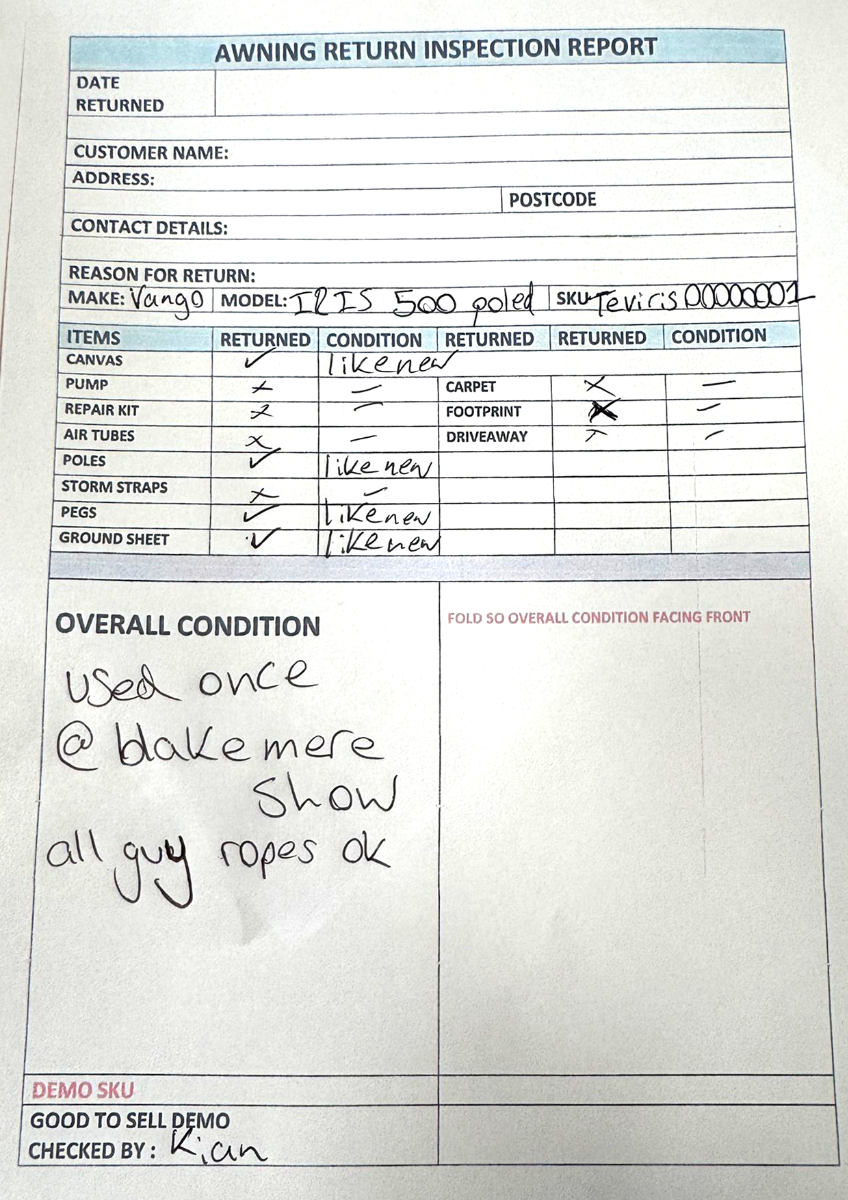 AWNING RETURN INSPECTION REPORT
DATE
RETURNED
CUSTOMER NAME:
ADDRESS:
POSTCODE
CONTACT DETAILS:
REASON FOR RETURN:
MAKE: Vango MODEL: IRIS 500 poled SKU: Teviris00000001
ITEMS RETURNED CONDITION RETURNED RETURNED CONDITION
CANVAS ✓ like new
PUMP x – CARPET x –
REPAIR KIT x – FOOTPRINT x –
AIR TUBES x – DRIVEAWAY x –
POLES ✓ like new
STORM STRAPS x –
PEGS ✓ like new
GROUND SHEET ✓ like new
OVERALL CONDITION FOLD SO OVERALL CONDITION FACING FRONT
used once
@ blakemere
show
all guy ropes ok
DEMO SKU
GOOD TO SELL DEMO
CHECKED BY : Kian